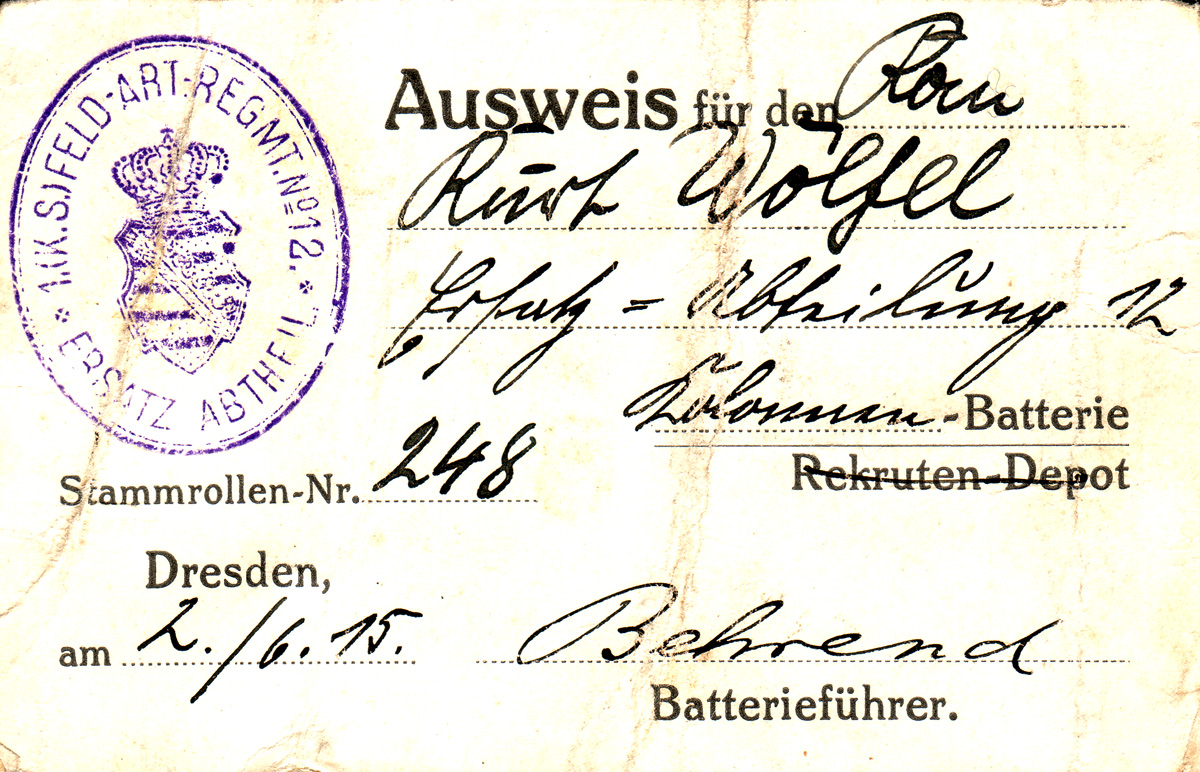 1.(K.S.) FELD-ART.-REGMT. Nº 12.
ERSATZ ABTHEIL.
Ausweis für den Kan
Kurt Wölfel
Ersatz = Abteilung 12
Kolonnen-Batterie
Rekruten-Depot
Stammrollen-Nr. 248
Dresden,
am 2./6. 15. Behrend
Batterieführer.